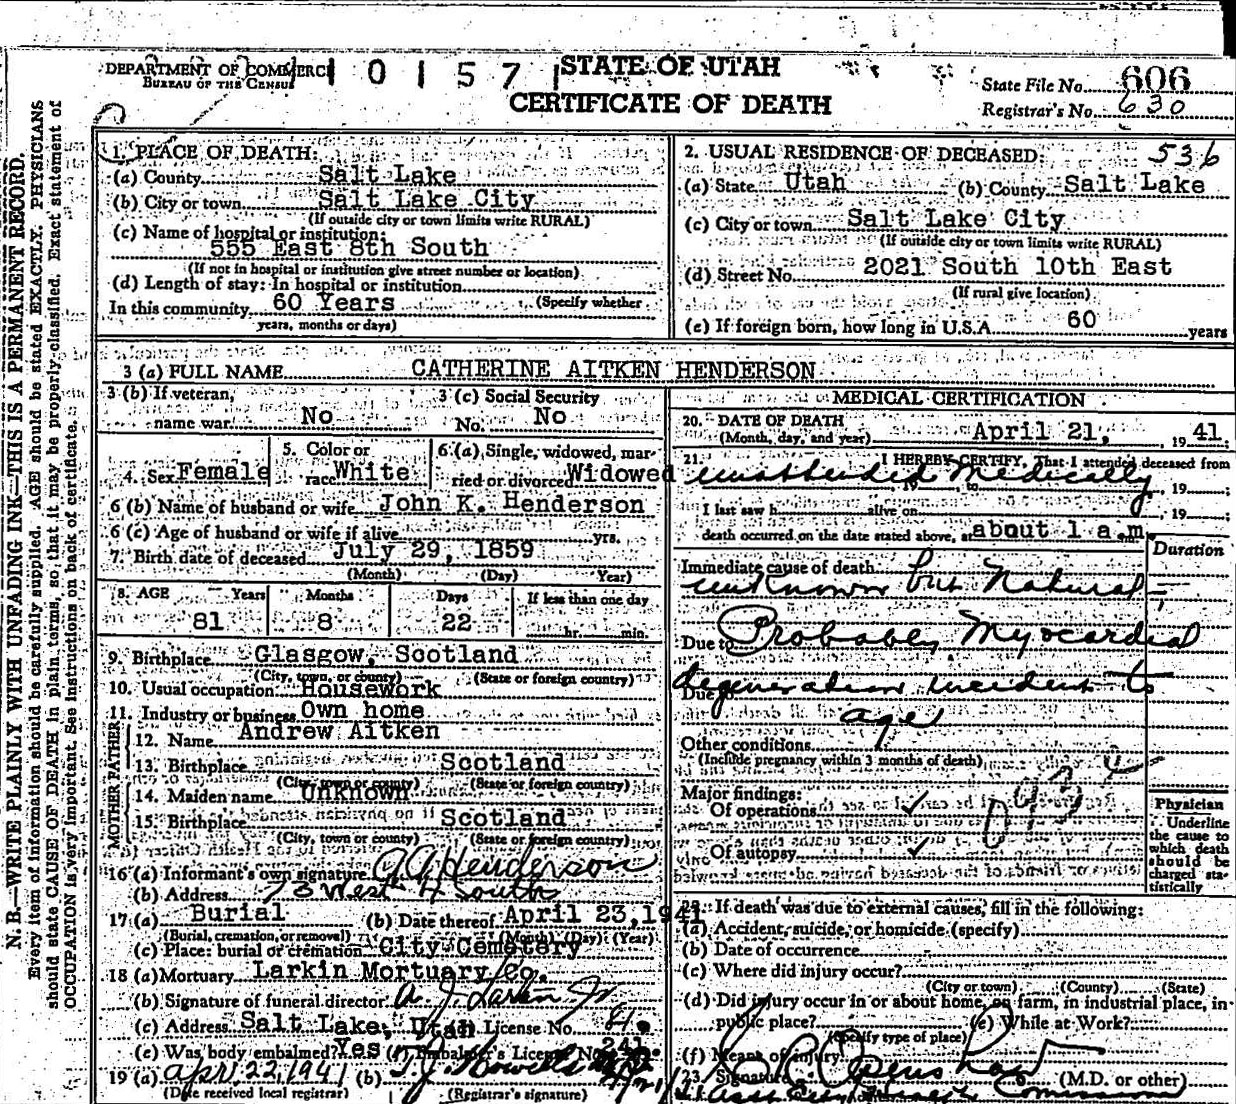 DEPARTMENT OF COMMERCE
BUREAU OF THE CENSUS
1 0 1 5 7 1
STATE OF UTAH
CERTIFICATE OF DEATH
State File No. 606
Registrar's No. 630
N. B.—WRITE PLAINLY WITH UNFADING INK—THIS IS A PERMANENT RECORD.
Every item of information should be carefully supplied. AGE should be stated EXACTLY. PHYSICIANS
should state CAUSE OF DEATH in plain terms, so that it may be properly classified. Exact statement of
OCCUPATION is very important. See instructions on back of certificate.
1. PLACE OF DEATH:
(a) County Salt Lake
(b) City or town Salt Lake City
(If outside city or town limits write RURAL)
(c) Name of hospital or institution:
555 East 8th South
(If not in hospital or institution give street number or location)
(d) Length of stay: In hospital or institution
In this community 60 Years (Specify whether
years, months or days)
2. USUAL RESIDENCE OF DECEASED: 536
(a) State Utah (b) County Salt Lake
(c) City or town Salt Lake City
(If outside city or town limits write RURAL)
(d) Street No. 2021 South 10th East
(If rural give location)
(e) If foreign born, how long in U.S.A. 60 years
3 (a) FULL NAME CATHERINE AITKEN HENDERSON
3 (b) If veteran, name war No
3 (c) Social Security No. No
4. Sex Female
5. Color or race White
6 (a) Single, widowed, married or divorced Widowed
6 (b) Name of husband or wife John K. Henderson
6 (c) Age of husband or wife if alive yrs.
7. Birth date of deceased July 29, 1859
(Month) (Day) Year)
8. AGE Years Months Days If less than one day
81 8 22 hr. min.
9. Birthplace Glasgow, Scotland
(City, town, or county) (State or foreign country)
10. Usual occupation Housework
11. Industry or business Own home
FATHER
12. Name Andrew Aitken
13. Birthplace Scotland
(City, town or county) (State or foreign country)
MOTHER
14. Maiden name Unknown
15. Birthplace Scotland
(City, town or county) (State or foreign country)
16 (a) Informant's own signature A. A. Henderson
(b) Address 73 West 4 South
17 (a) Burial (b) Date thereof April 23, 1941
(Burial, cremation, or removal) (Month) (Day) (Year)
(c) Place: burial or cremation City Cemetery
18 (a) Mortuary Larkin Mortuary Co.
(b) Signature of funeral director A. J. Larkin Jr
(c) Address Salt Lake, Utah (d) License No. 81
(e) Was body embalmed? Yes (f) Embalmer's License No. 241
19 (a) Apr. 22, 1941 (b)
(Date received local registrar) (Registrar's signature)
MEDICAL CERTIFICATION
20. DATE OF DEATH
(Month, day, and year) April 21, 1941
21. I HEREBY CERTIFY, That I attended deceased from
unattended medically, 19 ;
I last saw h alive on , 19 ;
death occurred on the date stated above, at about 1 a.m.
Duration
Immediate cause of death
unknown but Natural
Due to Probably Myocardial
Due to degeneration incident to
age
Other conditions
(Include pregnancy within 3 months of death)
Major findings:
Of operations
Of autopsy
Physician
Underline
the cause to
which death
should be
charged statistically
22. If death was due to external causes, fill in the following:
(a) Accident, suicide, or homicide (specify)
(b) Date of occurrence
(c) Where did injury occur?
(City or town) (County) (State)
(d) Did injury occur in or about home, on farm, in industrial place, in
public place?
(Specify type of place)
(e) While at Work?
(f) Means of injury
23. Signature
(M.D. or other)